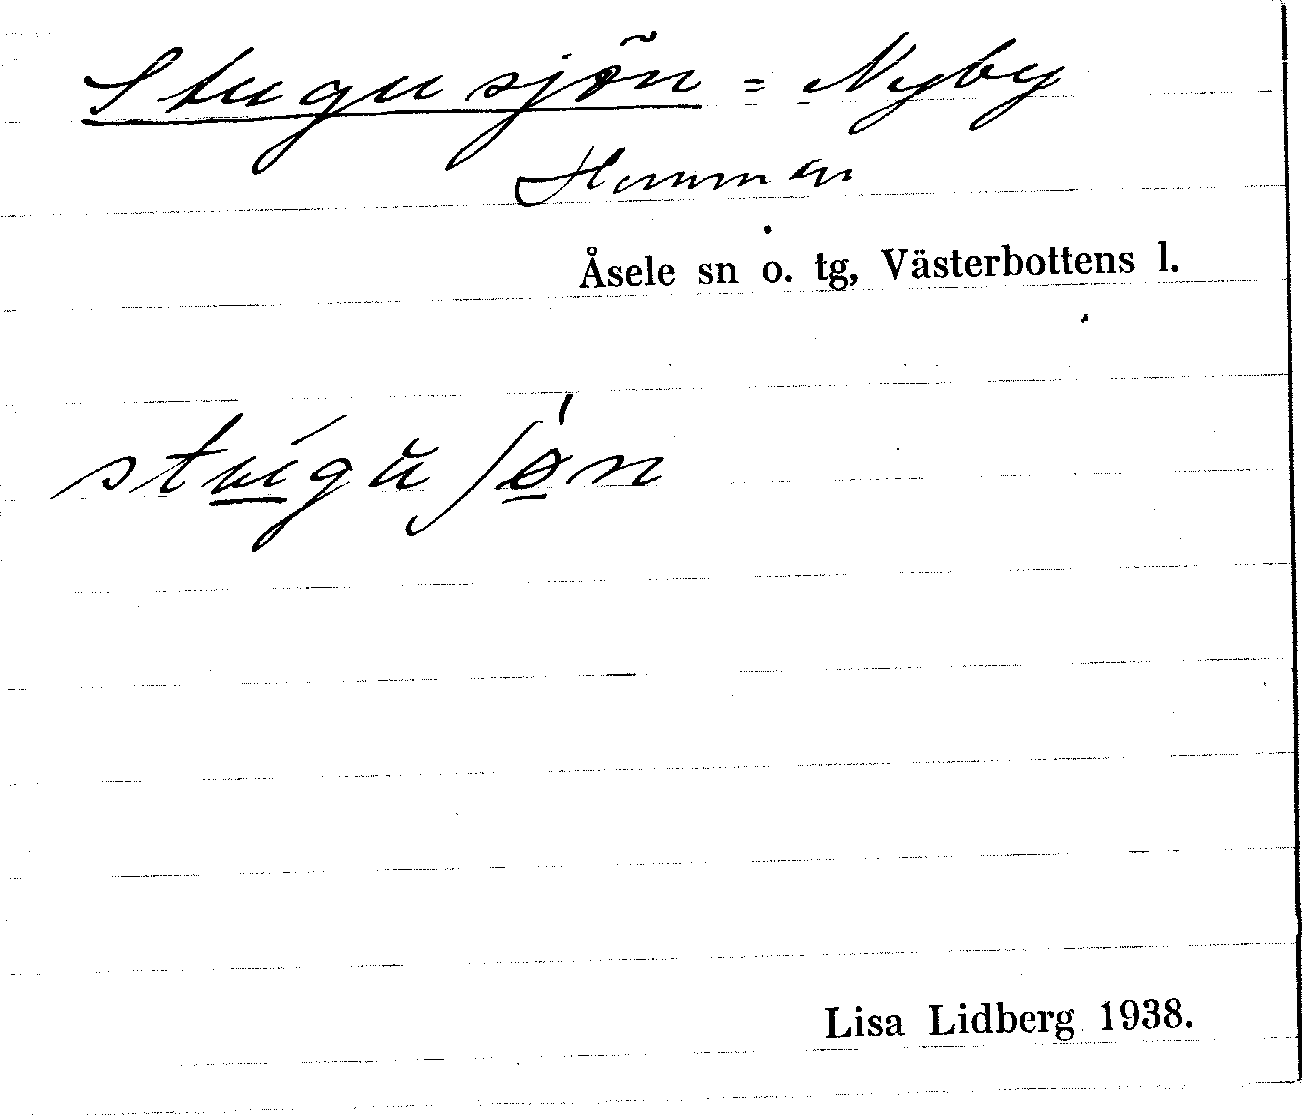 Stugusjön = Nyby
Hemman
Åsele sn o. tg, Västerbottens l.
stúgŭʃø̀n
Lisa Lidberg 1938.